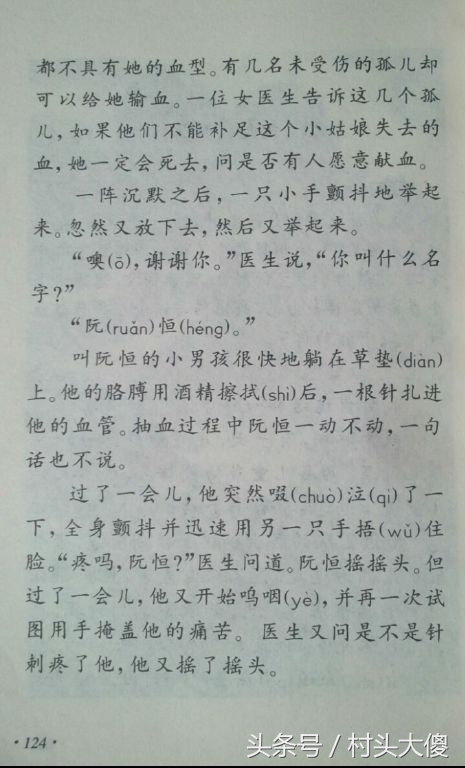 都不具有她的血型。有几名未受伤的孤儿却
可以给她输血。一位女医生告诉这几个孤
儿，如果他们不能补足这个小姑娘失去的
血，她一定会死去，问是否有人愿意献血。
一阵沉默之后，一只小手颤抖地举起
来。忽然又放下去，然后又举起来。
“噢(ō)，谢谢你。”医生说，“你叫什么名
字？”
“阮(ruǎn)恒(héng)。”
叫阮恒的小男孩很快地躺在草垫(diàn)
上。他的胳膊用酒精擦拭(shì)后，一根针扎进
他的血管。抽血过程中阮恒一动不动，一句
话也不说。
过了一会儿，他突然啜(chuò)泣(qì)了一
下，全身颤抖并迅速用另一只手捂(wǔ)住
脸。“疼吗，阮恒？”医生问道。阮恒摇摇头。但
过了一会儿，他又开始呜咽(yè)，并再一次试
图用手掩盖他的痛苦。 医生又问是不是针
刺疼了他，他又摇了摇头。
·124·
头条号 / 村头大傻